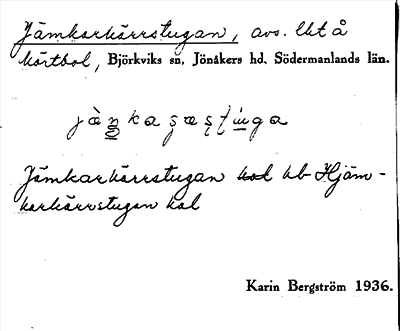 Jämkarkärrstugan, avs. lht å
Mörtbol, Björkviks sn, Jönåkers hd, Södermanlands län.
Jämkarkärrstugan hb Hjäm-
karkärrstugan kal
Karin Bergström 1936.